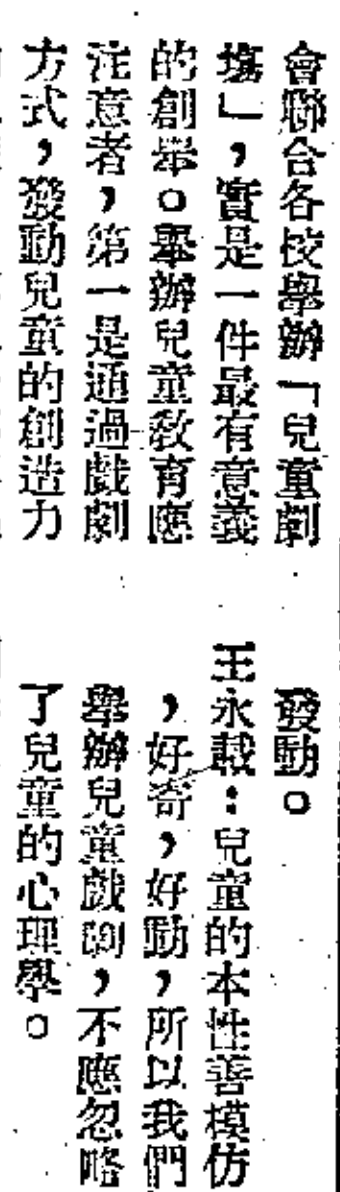 會聯合各校舉辦「兒童劇
塲」，實是一件最有意義
的創舉。舉辦兒童教育應
注意者，第一是通過戲劇
方式，發動兒童的創造力
發動。
王永載：兒童的本性善模仿
，好奇，好動，所以我們
舉辦兒童戲劇，不應忽略
了兒童的心理學。